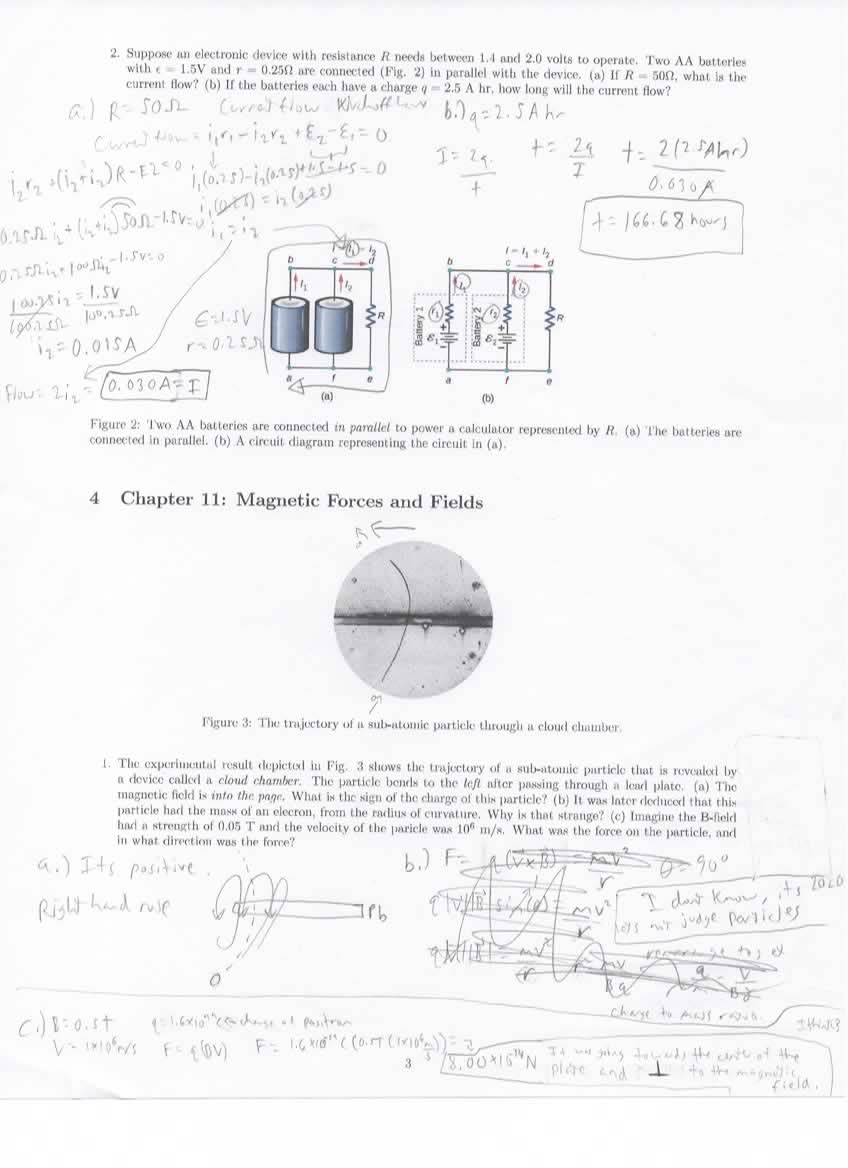 2. Suppose an electronic device with resistance R needs between 1.4 and 2.0 volts to operate. Two AA batteries
with ϵ = 1.5V and r = 0.25Ω are connected (Fig. 2) in parallel with the device. (a) If R = 50Ω, what is the
current flow? (b) If the batteries each have a charge q = 2.5 A hr, how long will the current flow?
a.) R = 50Ω Current flow Kirchoff law
b.) q = 2.5 A hr
Current flow = i₁r₁ - i₂r₂ + ε₂ - ε₁ = 0
i₂r₂ + (i₂+i₂)R - E2 = 0
i₁(0.25) - i₂(0.25) + 1.5 - 1.5 = 0
i₁(0.25) = i₂(0.25)
i₁ = i₂
I = 2q/t
t = 2q/I
t = 2(2.5Ahr)/0.030A
t = 166.68 hours
0.25Ω i₂ + (i₂+i₂)50Ω - 1.5V = 0
0.25Ω i₂ + 100Ω i₂ - 1.5V = 0
100.25 i₂ = 1.5V
100.25Ω 100.25Ω
i₂ = 0.015A
flow = 2i₂ = 0.030A = I
ϵ = 1.5V
r = 0.25Ω
b c d
I₁ I₂
R
a f e
(a)
I = I₁ + I₂
b c d
I₁ I₂
Battery 1 r₁ ε₁
Battery 2 r₂ ε₂
R
a f e
(b)
Figure 2: Two AA batteries are connected in parallel to power a calculator represented by R. (a) The batteries are
connected in parallel. (b) A circuit diagram representing the circuit in (a).
4 Chapter 11: Magnetic Forces and Fields
Figure 3: The trajectory of a sub-atomic particle through a cloud chamber.
1. The experimental result depicted in Fig. 3 shows the trajectory of a sub-atomic particle that is revealed by
a device called a cloud chamber. The particle bends to the left after passing through a lead plate. (a) The
magnetic field is into the page. What is the sign of the charge of this particle? (b) It was later deduced that this
particle had the mass of an elecron, from the radius of curvature. Why is that strange? (c) Imagine the B-field
had a strength of 0.05 T and the velocity of the paricle was 10⁶ m/s. What was the force on the particle, and
in what direction was the force?
a.) Its positive.
Right hand rule
Pb
b.) F = q(V×B) = mv²/r θ = 90°
I dont know, its 2020
lets not judge particles
charge to mass ratio.
I think?
C.) B = 0.5t
V = 1×10⁶m/s F = q(BV)
8.00×10⁻¹⁴N
It was going towards the center of the
plate and ⊥ to the magnetic
field.
3